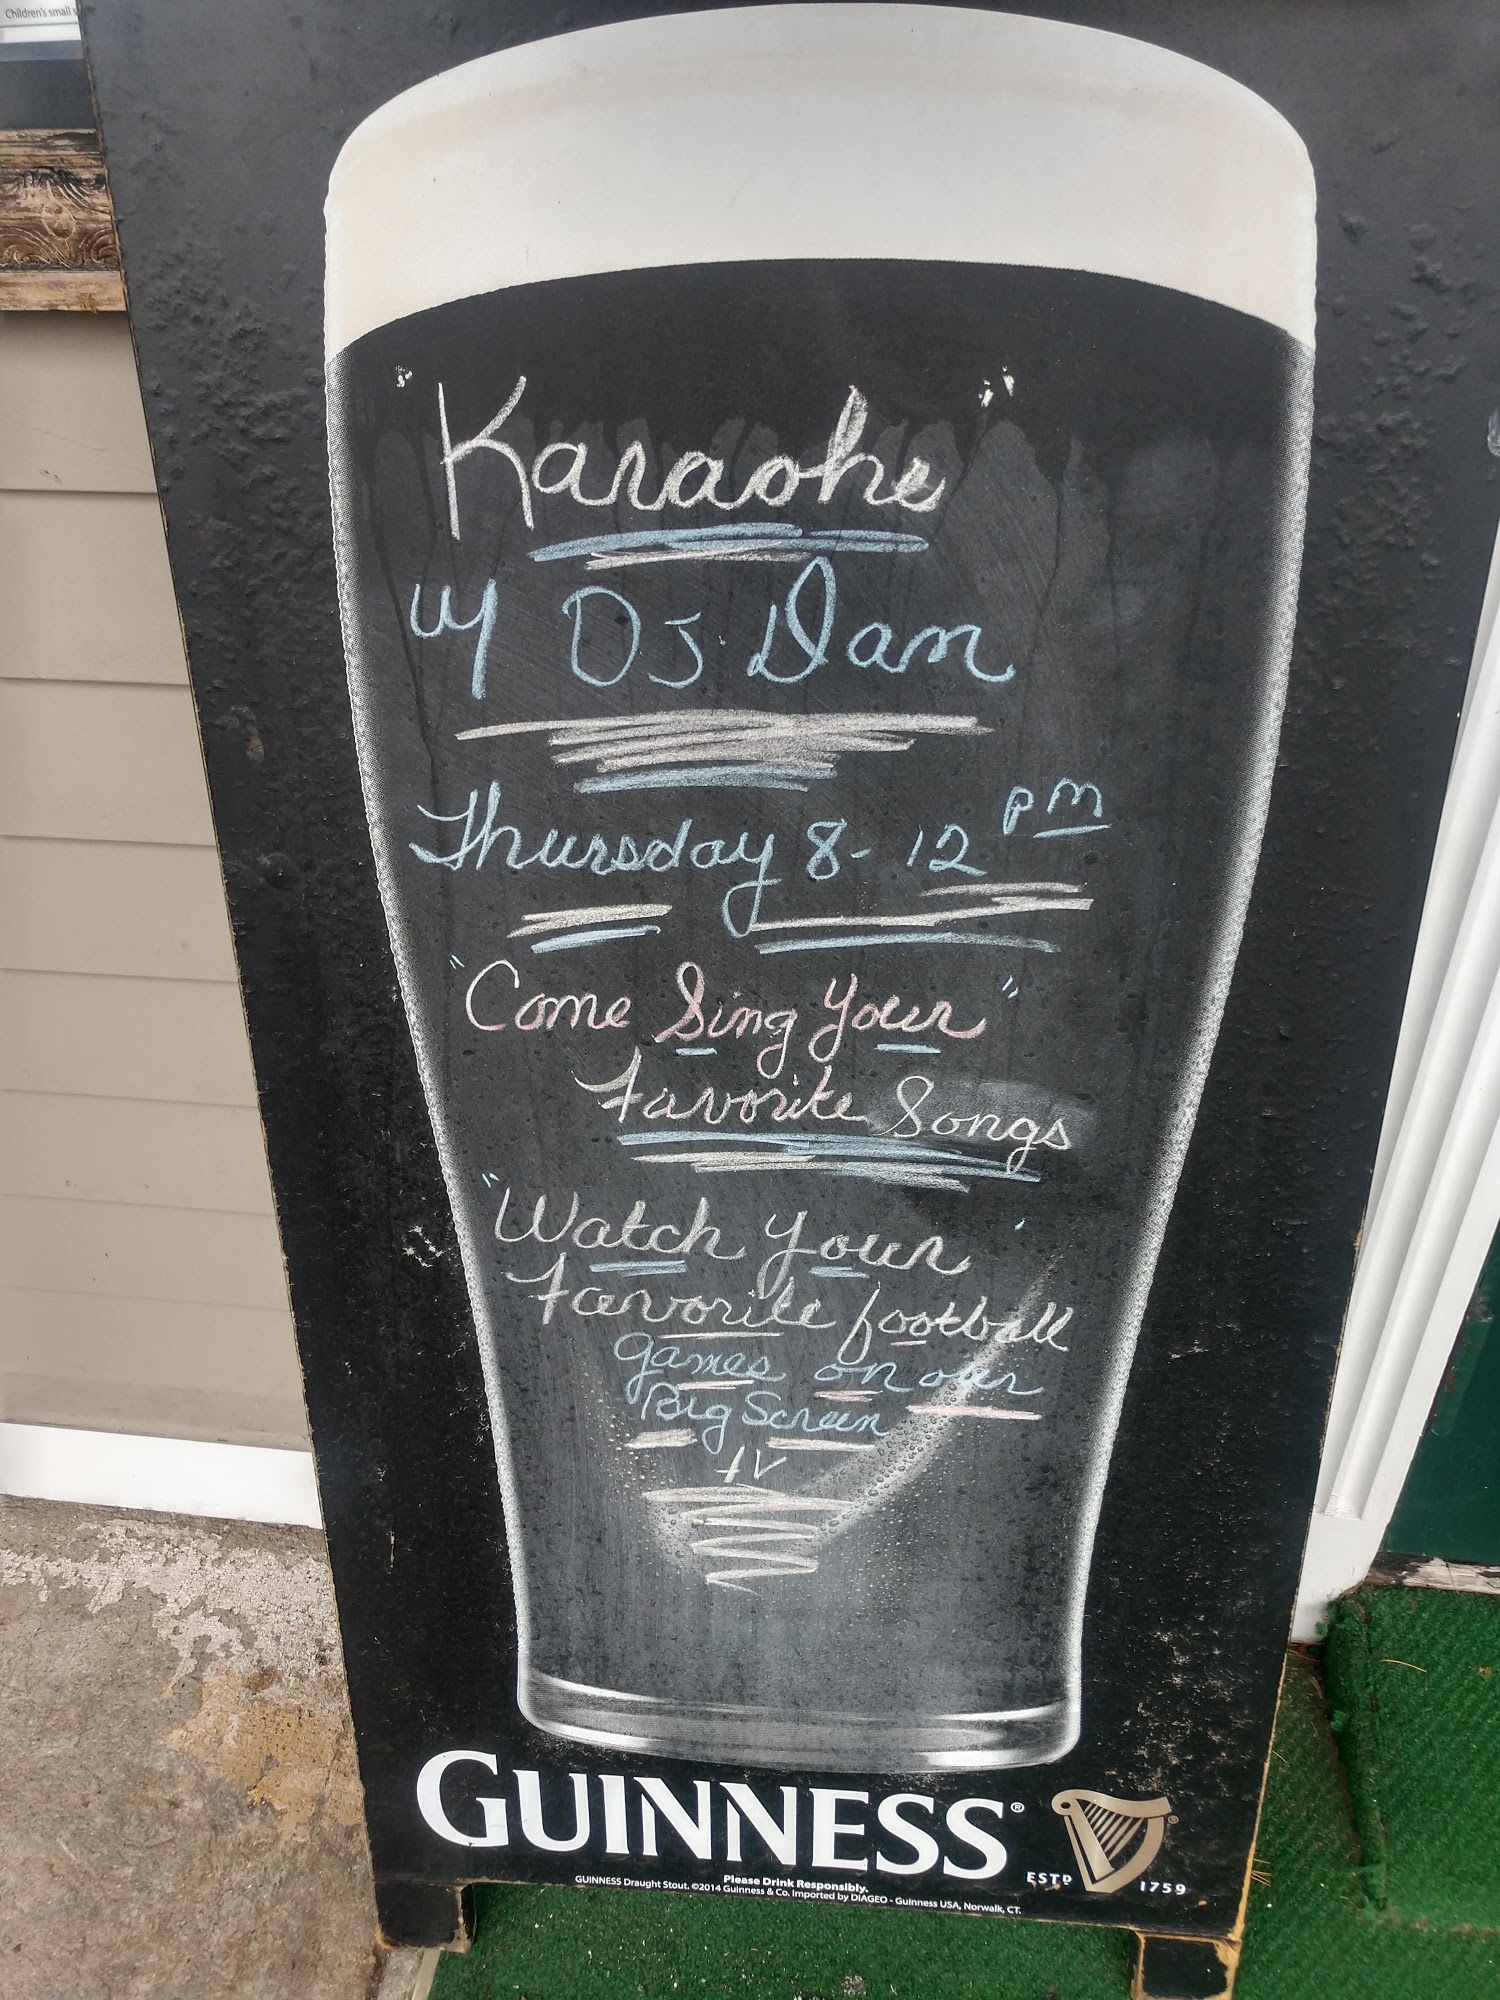 Children's small s
"Karaoke"
w/ DJ. Dan
Thursday 8-12 PM
"Come Sing Your"
Favorite Songs
"Watch Your '
Favorite football
games on our
Big Screen
TV
GUINNESS®
ESTD 1759
Please Drink Responsibly.
GUINNESS Draught Stout. ©2014 Guinness & Co. Imported by DIAGEO - Guinness USA, Norwalk, CT.